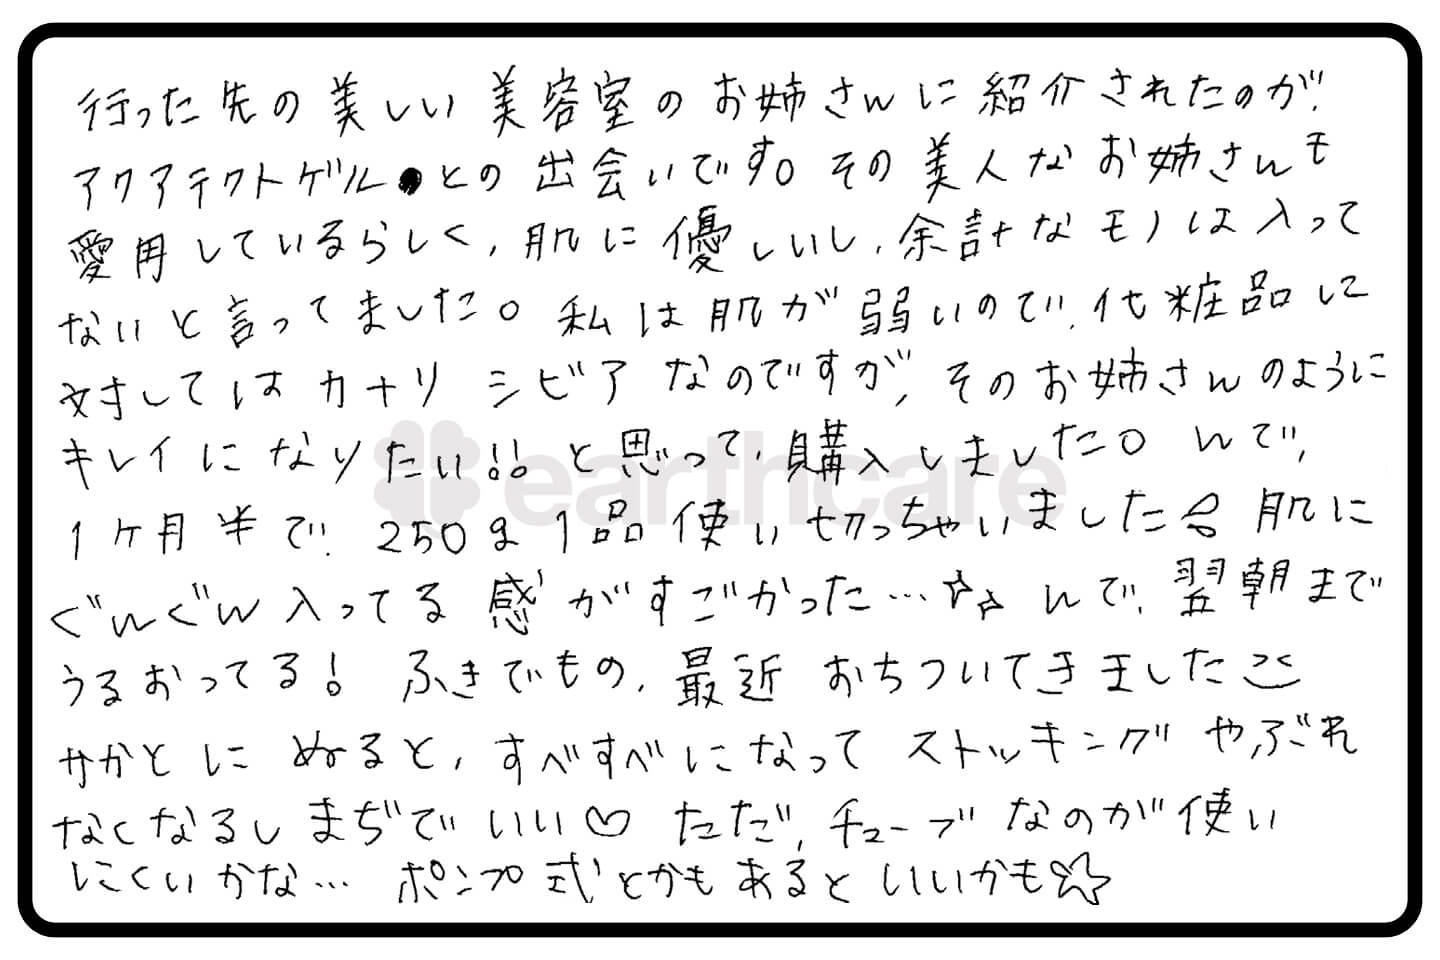 行った先の美しい美容室のお姉さんに紹介されたのが、
アクアテクトゲル●との出会いです。その美人なお姉さんも
愛用しているらしく、肌に優しいし、余計なモノは入って
ないと言ってました。私は肌が弱いので、化粧品に
対してはカナリシビアなのですが、そのお姉さんのように
キレイになりたい!!と思って、購入しました。んで、
earthcare
1ケ月半で、250g1品使い切っちゃいました 肌に
ぐんぐん入ってる感がすごかった…☆☆んで、翌朝まで
うるおってる!ふきでもの、最近おちついてきました
かかとにぬると、すべすべになってストッキングやぶれ
なくなるしまぢでいい♡ただ、チューブなのが使い
にくいかな…ポンプ式とかもあるといいかも☆